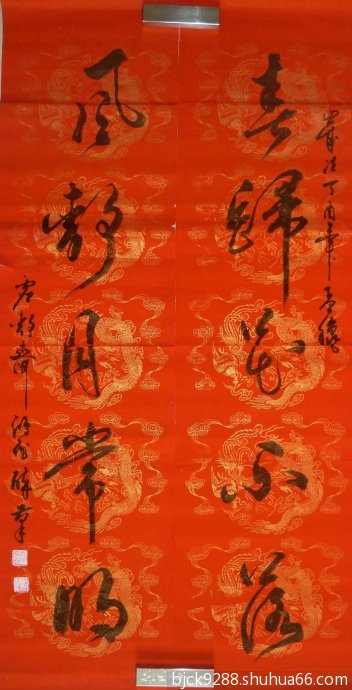 歲次丁酉年
春歸花不落
風靜月常明
bjck9288.shuhua66.com